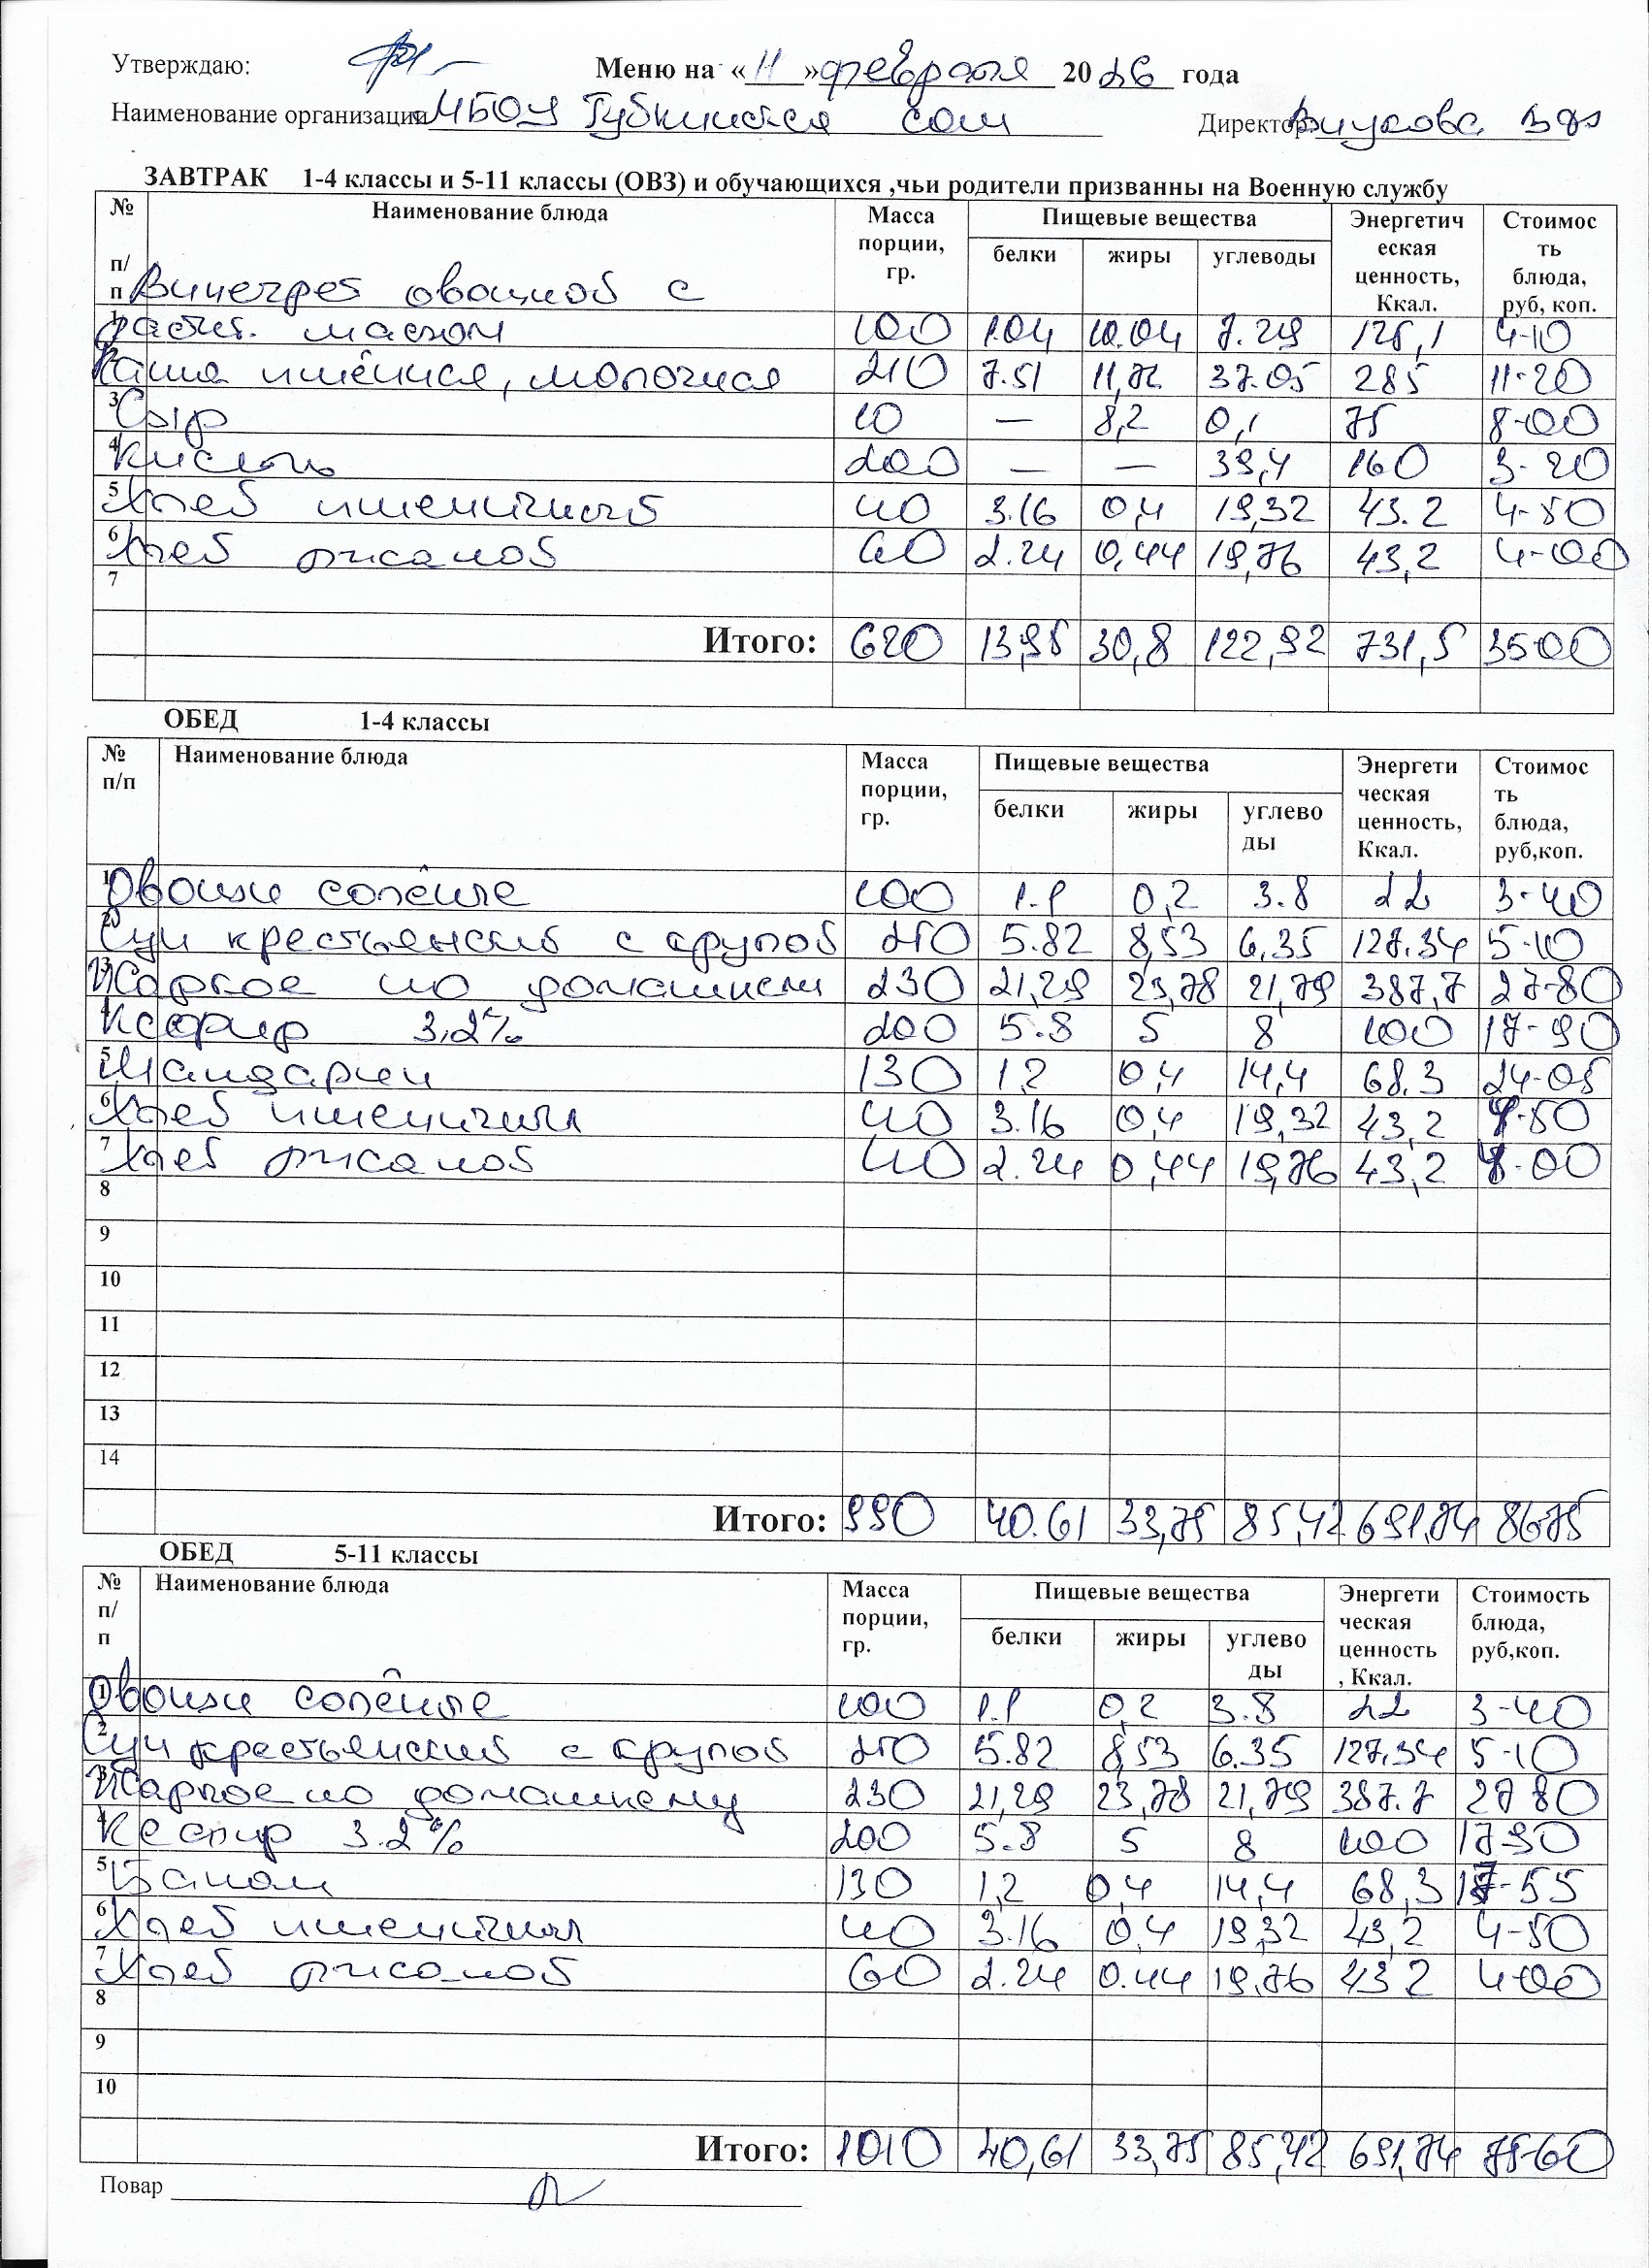 Утверждаю:
Меню на «11» февраля 2026 года
Наименование организации МБОУ Губкинская сош Директор Внукова
ЗАВТРАК 1-4 классы и 5-11 классы (ОВЗ) и обучающихся ,чьи родители призванны на Военную службу
№ п/п Наименование блюда Масса порции, гр. Пищевые вещества Энергетическая ценность, Ккал. Стоимость блюда, руб, коп.
белки жиры углеводы
Винегрет овощной с
1 растит. маслом 100 1.04 10.04 7.29 125,1 4-10
2 Каша пшённая, молочная 210 7.51 11,72 37.05 285 11-20
3 Сыр 10 — 8,2 0,1 75 8-00
4 Кисель 200 — — 39,4 160 3-20
5 Хлеб пшеничный 40 3.16 0,4 19,32 43.2 4-50
6 Хлеб ржаной 60 2.24 0,44 19,76 43,2 4-00
7
Итого: 620 13,95 30,8 122,92 731,5 35-00
ОБЕД 1-4 классы
№ п/п Наименование блюда Масса порции, гр. Пищевые вещества Энергетическая ценность, Ккал. Стоимость блюда, руб,коп.
белки жиры углеводы
1 Овощи солёные 100 1.1 0,2 3.8 22 3-40
2 Суп крестьянский с крупой 250 5.82 8,53 6,35 127.34 5-10
3 Жаркое по домашнему 230 21,29 23,78 21,79 387,7 27-80
4 Кефир 3,2% 200 5.8 5 8 100 17-90
5 Мандарин 130 1,2 0,4 14,4 68,3 24-05
6 Хлеб пшеничный 40 3.16 0,4 19,32 43,2 4-50
7 Хлеб ржаной 40 2.24 0,44 19,76 43,2 4-00
8
9
10
11
12
13
14
Итого: 990 40.61 33,75 85,42 691,74 86-75
ОБЕД 5-11 классы
№ п/п Наименование блюда Масса порции, гр. Пищевые вещества Энергетическая ценность, Ккал. Стоимость блюда, руб,коп.
белки жиры углеводы
1 Овощи солёные 100 1.1 0,2 3.8 22 3-40
2 Суп крестьянский с крупой 250 5.82 8,53 6.35 127,34 5-10
3 Жаркое по домашнему 230 21,29 23,78 21,79 387.7 27 80
4 Кефир 3.2% 200 5.8 5 8 100 17-90
5 Банан 130 1,2 0,4 14,4 68,3 17-55
6 Хлеб пшеничный 40 3.16 0,4 19,32 43,2 4-50
7 Хлеб ржаной 60 2.24 0.44 19,76 43 2 4-00
8
9
10
Итого: 1010 40,61 33,75 85,42 691,74 75-60
Повар